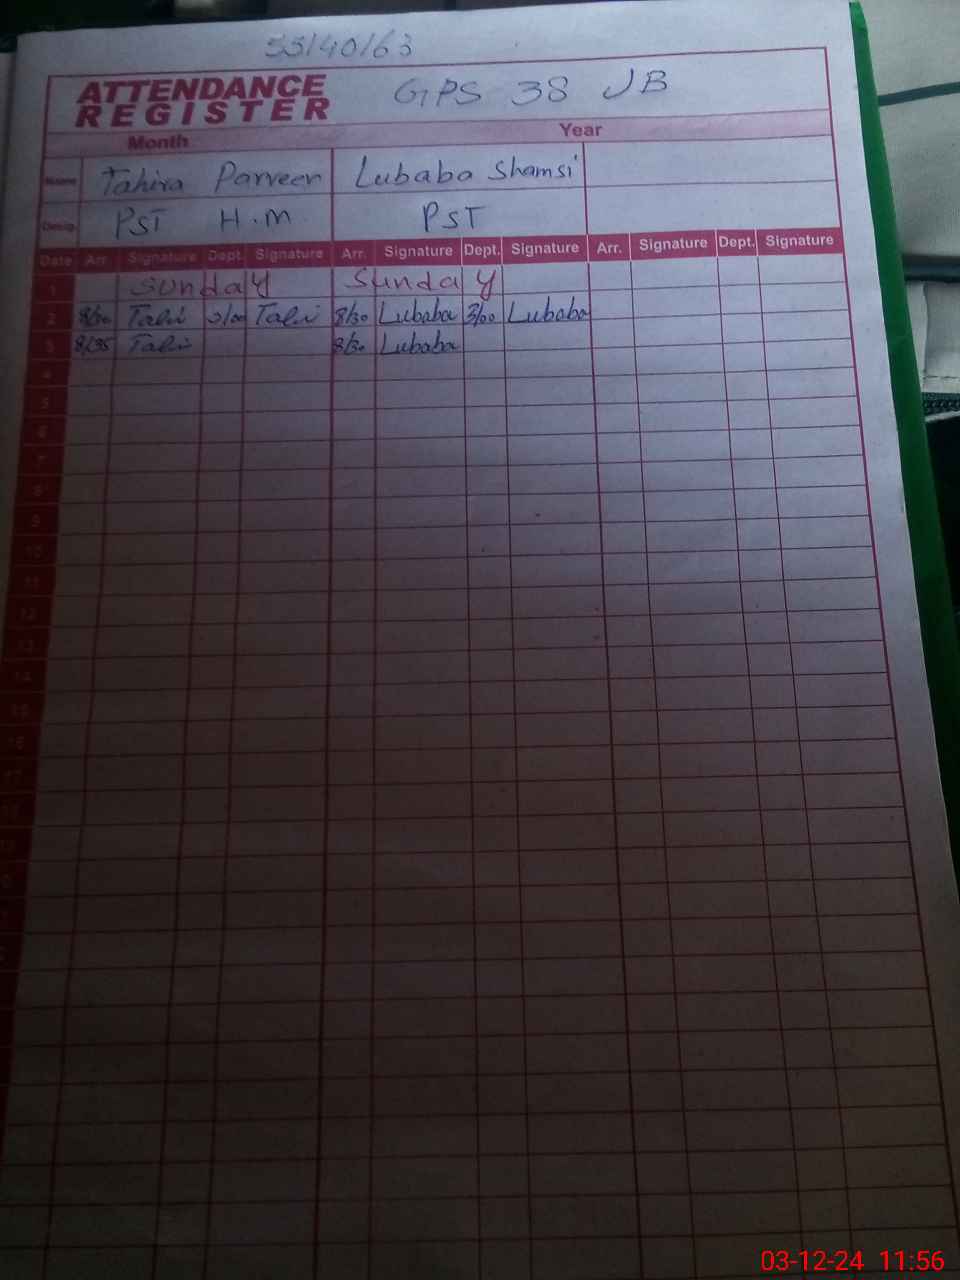 55140163
ATTENDANCE GPS 38 JB
REGISTER
Month Year
Name Tahira Parveen Lubaba Shamsi
Desig. PST H.M PST
Date Arr. Signature Dept. Signature Arr. Signature Dept. Signature Arr. Signature Dept. Signature
1 Sunday Sunday
2 8/30 Tahi Tahi 8/30 Lubaba 3/00 Lubaba
3 8/35 Tahi 8/30 Lubaba
4
5
6
7
8
9
10
11
12
13
14
15
16
17
03-12-24 11:56